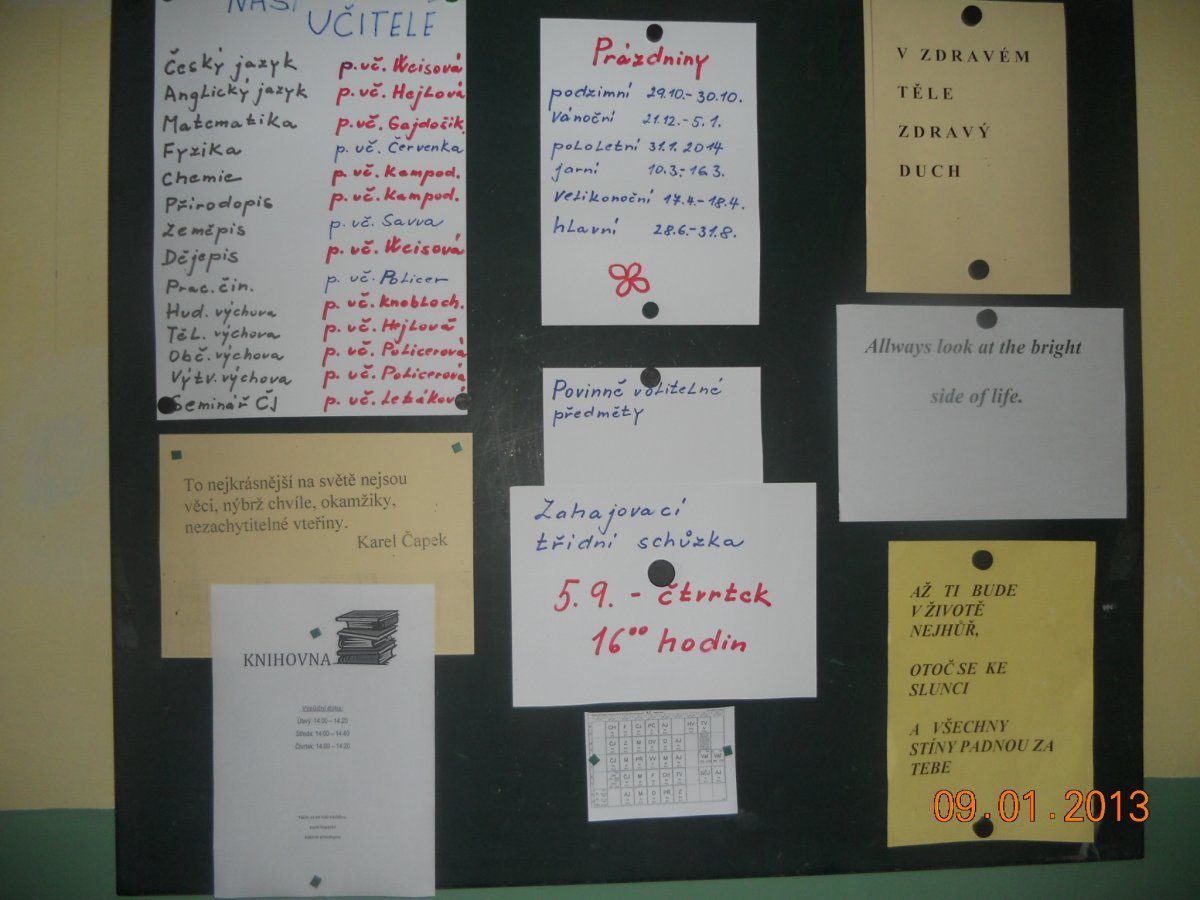 NAŠI
UČITELÉ
Český jazyk p. uč. Weisová
Anglický jazyk p. uč. Hejlová
Matematika p. uč. Gajdošik.
Fyzika p. uč. Červenka
Chemie p. uč. Kampod.
Přírodopis p. uč. Kampod.
Zeměpis p. uč. Savva
Dějepis p. uč. Weisová
Prac. čin. p. uč. Policer
Hud. výchova p. uč. Knobloch.
Těl. výchova p. uč. Hejlová
Obč. výchova p. uč. Policerová
Výtv. výchova p. uč. Policerová
Seminář ČJ p. uč. Lebáková
To nejkrásnější na světě nejsou
věci, nýbrž chvíle, okamžiky,
nezachytitelné vteřiny.
Karel Čapek
KNIHOVNA
Výpůjční doba:
Úterý: 14:00 – 14:20
Středa: 14:00 – 14:40
Čtvrtek: 14:00 – 14:20
Prázdniny
podzimní 29.10.-30.10.
vánoční 21.12.-5.1.
pololetní 31.1.2014
jarní 10.3.-16.3.
velikonoční 17.4.-18.4.
hlavní 28.6.-31.8.
Povinně volitelné
předměty
Zahajovací
třídní schůzka
5.9. - čtvrtek
16⁰⁰ hodin
V ZDRAVÉM
TĚLE
ZDRAVÝ
DUCH
Allways look at the bright
side of life.
AŽ TI BUDE
V ŽIVOTĚ
NEJHŮŘ,
OTOČ SE KE
SLUNCI
A VŠECHNY
STÍNY PADNOU ZA
TEBE
09.01.2013